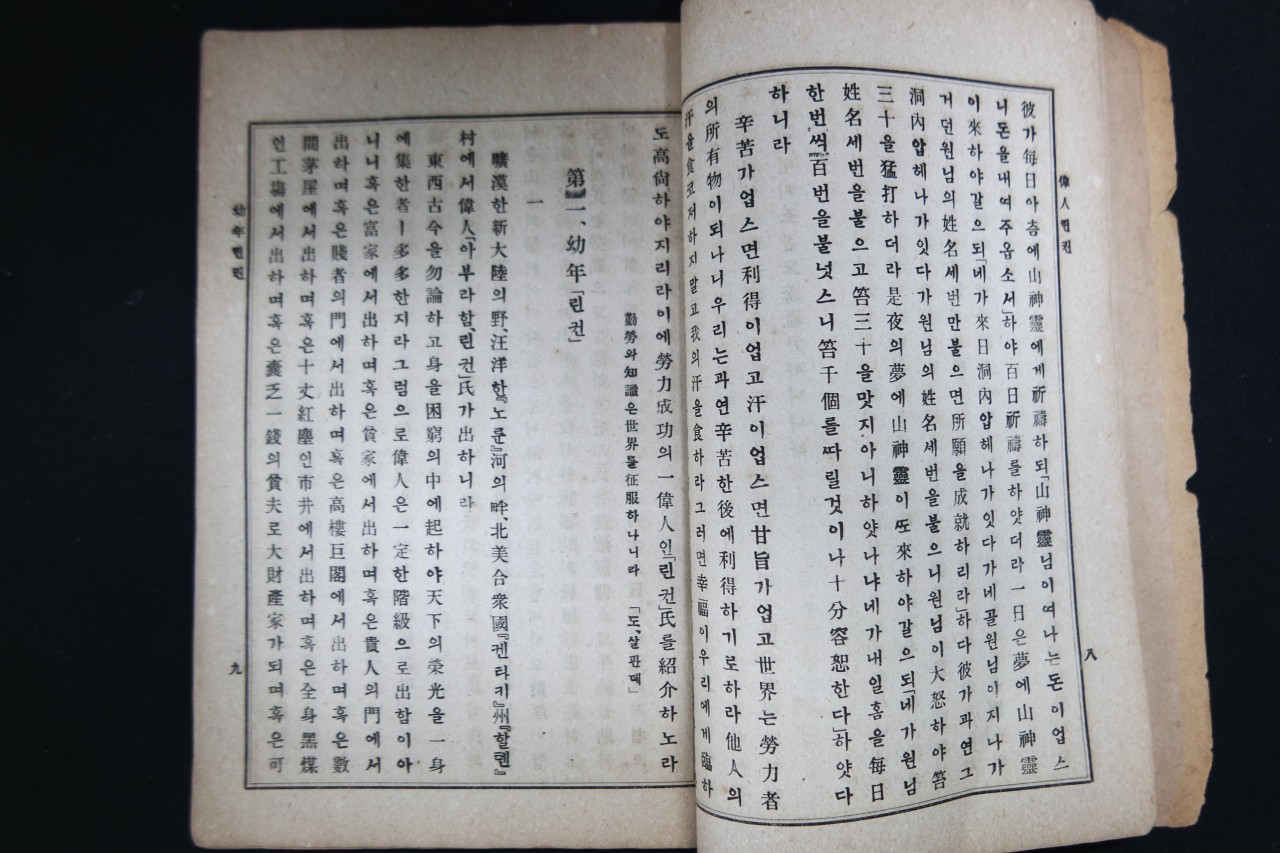 偉人린컨
八
彼가每日아츰에山神靈에게祈禱하되「山神靈님이여나는돈이업스
니돈을내여주옵소서」하야百日祈禱를하얏더라一日은夢에山神靈
이來하야갈으되「네가來日洞內압헤나가잇다가네골원님이지나가
거던원님의姓名세번만불으면所願을成就하리라」하다彼가과연그
洞內압헤나가잇다가원님의姓名세번을불으니원님이大怒하야笞
三十을猛打하더라是夜의夢에山神靈이또來하야갈으되「네가원님
姓名세번을불으고笞三十을맛지아니하얏나냐네가내일홈을每日
한번씩百번을불넛스니笞千個를따릴것이나十分容恕한다」하얏다
하니라
辛苦가업스면利得이업고汗이업스면甘旨가업고世界는勞力者
의所有物이되나니우리는과연辛苦한後에利得하기로하라他人의
汗을食코저하지말고我의汗을食하라그러면幸福이우리에게臨하
도高尙하야지리라이에勞力成功의一偉人인「린컨」氏를紹介하노라
勤勞와知識은世界를征服하나니라 「도、살판데」
第一、幼年「린컨」
一
曠漠한新大陸의野、汪洋한『노룬』河의畔、北美合衆國『켄라키』州『할덴』
村에서偉人「아부라함、린컨」氏가出하니라
東西古今을勿論하고身을困窮의中에起하야天下의榮光을一身
에集한者ㅣ多多한지라그럼으로偉人은一定한階級으로出함이아
니니혹은富家에서出하며혹은貧家에서出하며혹은貴人의門에서
出하며혹은賤者의門에서出하며혹은高樓巨閣에서出하며혹은數
間茅屋에서出하며혹은十丈紅塵인市井에서出하며혹은全身黑煤
인工塲에서出하며혹은囊乏一錢의貧夫로大財產家가되며혹은可
幼年린컨
九